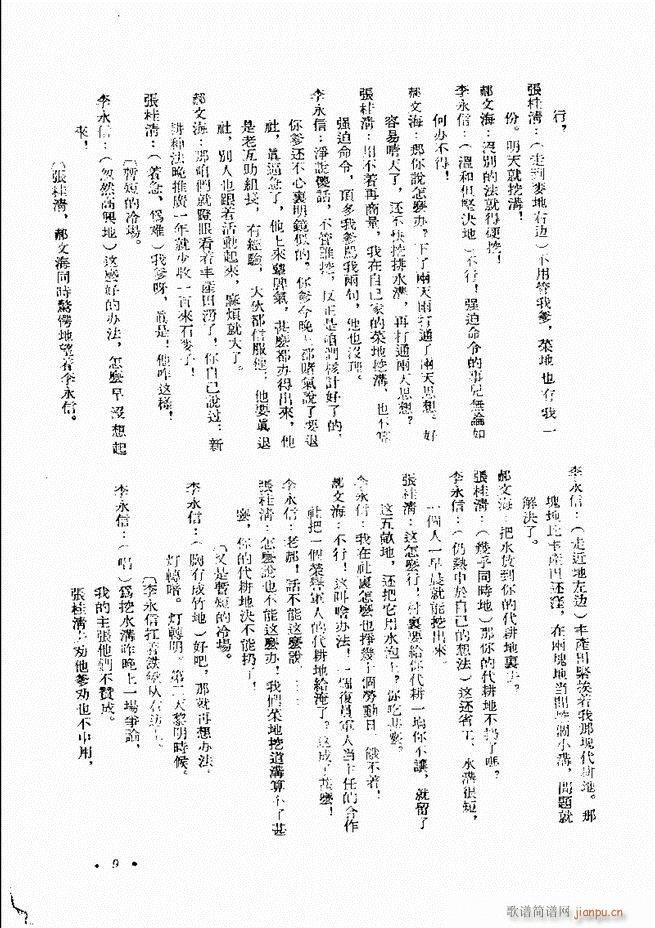 行，
張桂清：（走到麥地右边）不用管我爹，菜地也有我一
份。明天就挖溝！
郝文海：沒別的法就得硬挖！
李永信：（溫和但堅決地）不行！强迫命令的事兒無論如
何办不得！
郝文海：那你說怎麼办？下了兩天雨打通了兩天思想。好
容易晴天了，还不快挖排水溝，再打通兩天思想？
張桂清：用不着再商量，我在自己家的菜地挖溝，也不算
强迫命令，頂多我爹罵我兩句，他也沒理。
李永信：淨說傻話，不管誰挖，反正是咱們核計好了的，
你爹还不心裏明鏡似的。你爹今晚上都賭氣說了要退
社，眞逼急了，他上來犟脾氣，甚麼都办得出來，他
是老互助組長，有經驗，大伙都信服他，他要眞退
社，別人也跟着活動起來，麻煩就大了。
郝文海：那咱們就瞪眼看着丰產田澇了！你自己說过：新
耕种法晚推廣一年就少收一百來石麥子！
張桂清：（着急，爲难）我爹呀，眞是！他咋这樣！
〔暫短的冷場。
李永信：（忽然高興地）这麼好的办法，怎麼早沒想起
來！
〔張桂清，郝文海同時驚愕地望着李永信。
李永信：（走近地左边）丰產田緊挨着我那塊代耕地。那
塊地比丰產田还窪，在兩塊地当間挖個小溝，問題就
解決了。
郝文海：把水放到你的代耕地裏去。
張桂清：（幾乎同時地）那你的代耕地不扔了嗎？
李永信：（仍熱中於自己的想法）这还省工，水溝很短，
一個人一早晨就能挖出來。
張桂清：这怎麼行！社裏要給你代耕一塊你不讓，就留了
这五畝地，还把它用水泡上？你吃甚麼。
李永信：我在社裏怎麼也掙幾十個勞動日，餓不着！
郝文海：不行！这叫啥办法！一個復員軍人当主任的合作
社把一個榮譽軍人的代耕地給淹了。这成了甚麼！
李永信：老郝！話不能这麼說……
張桂清：怎麼說也不能这麼办！我們菜地挖道溝算不了甚
麼，你的代耕地決不能扔！
〔又是暫短的冷場。
李永信：（胸有成竹地）好吧，那就再想办法。
灯轉暗。灯轉明。第二天黎明時候。
〔李永信扛着鉄鍬从右边上。
李永信：（唱）爲挖水溝昨晚上一場爭論，
我的主張他們不贊成。
張桂清去劝他爹劝也不中用，
• 9 •
歌谱简谱网 jianpu.cn